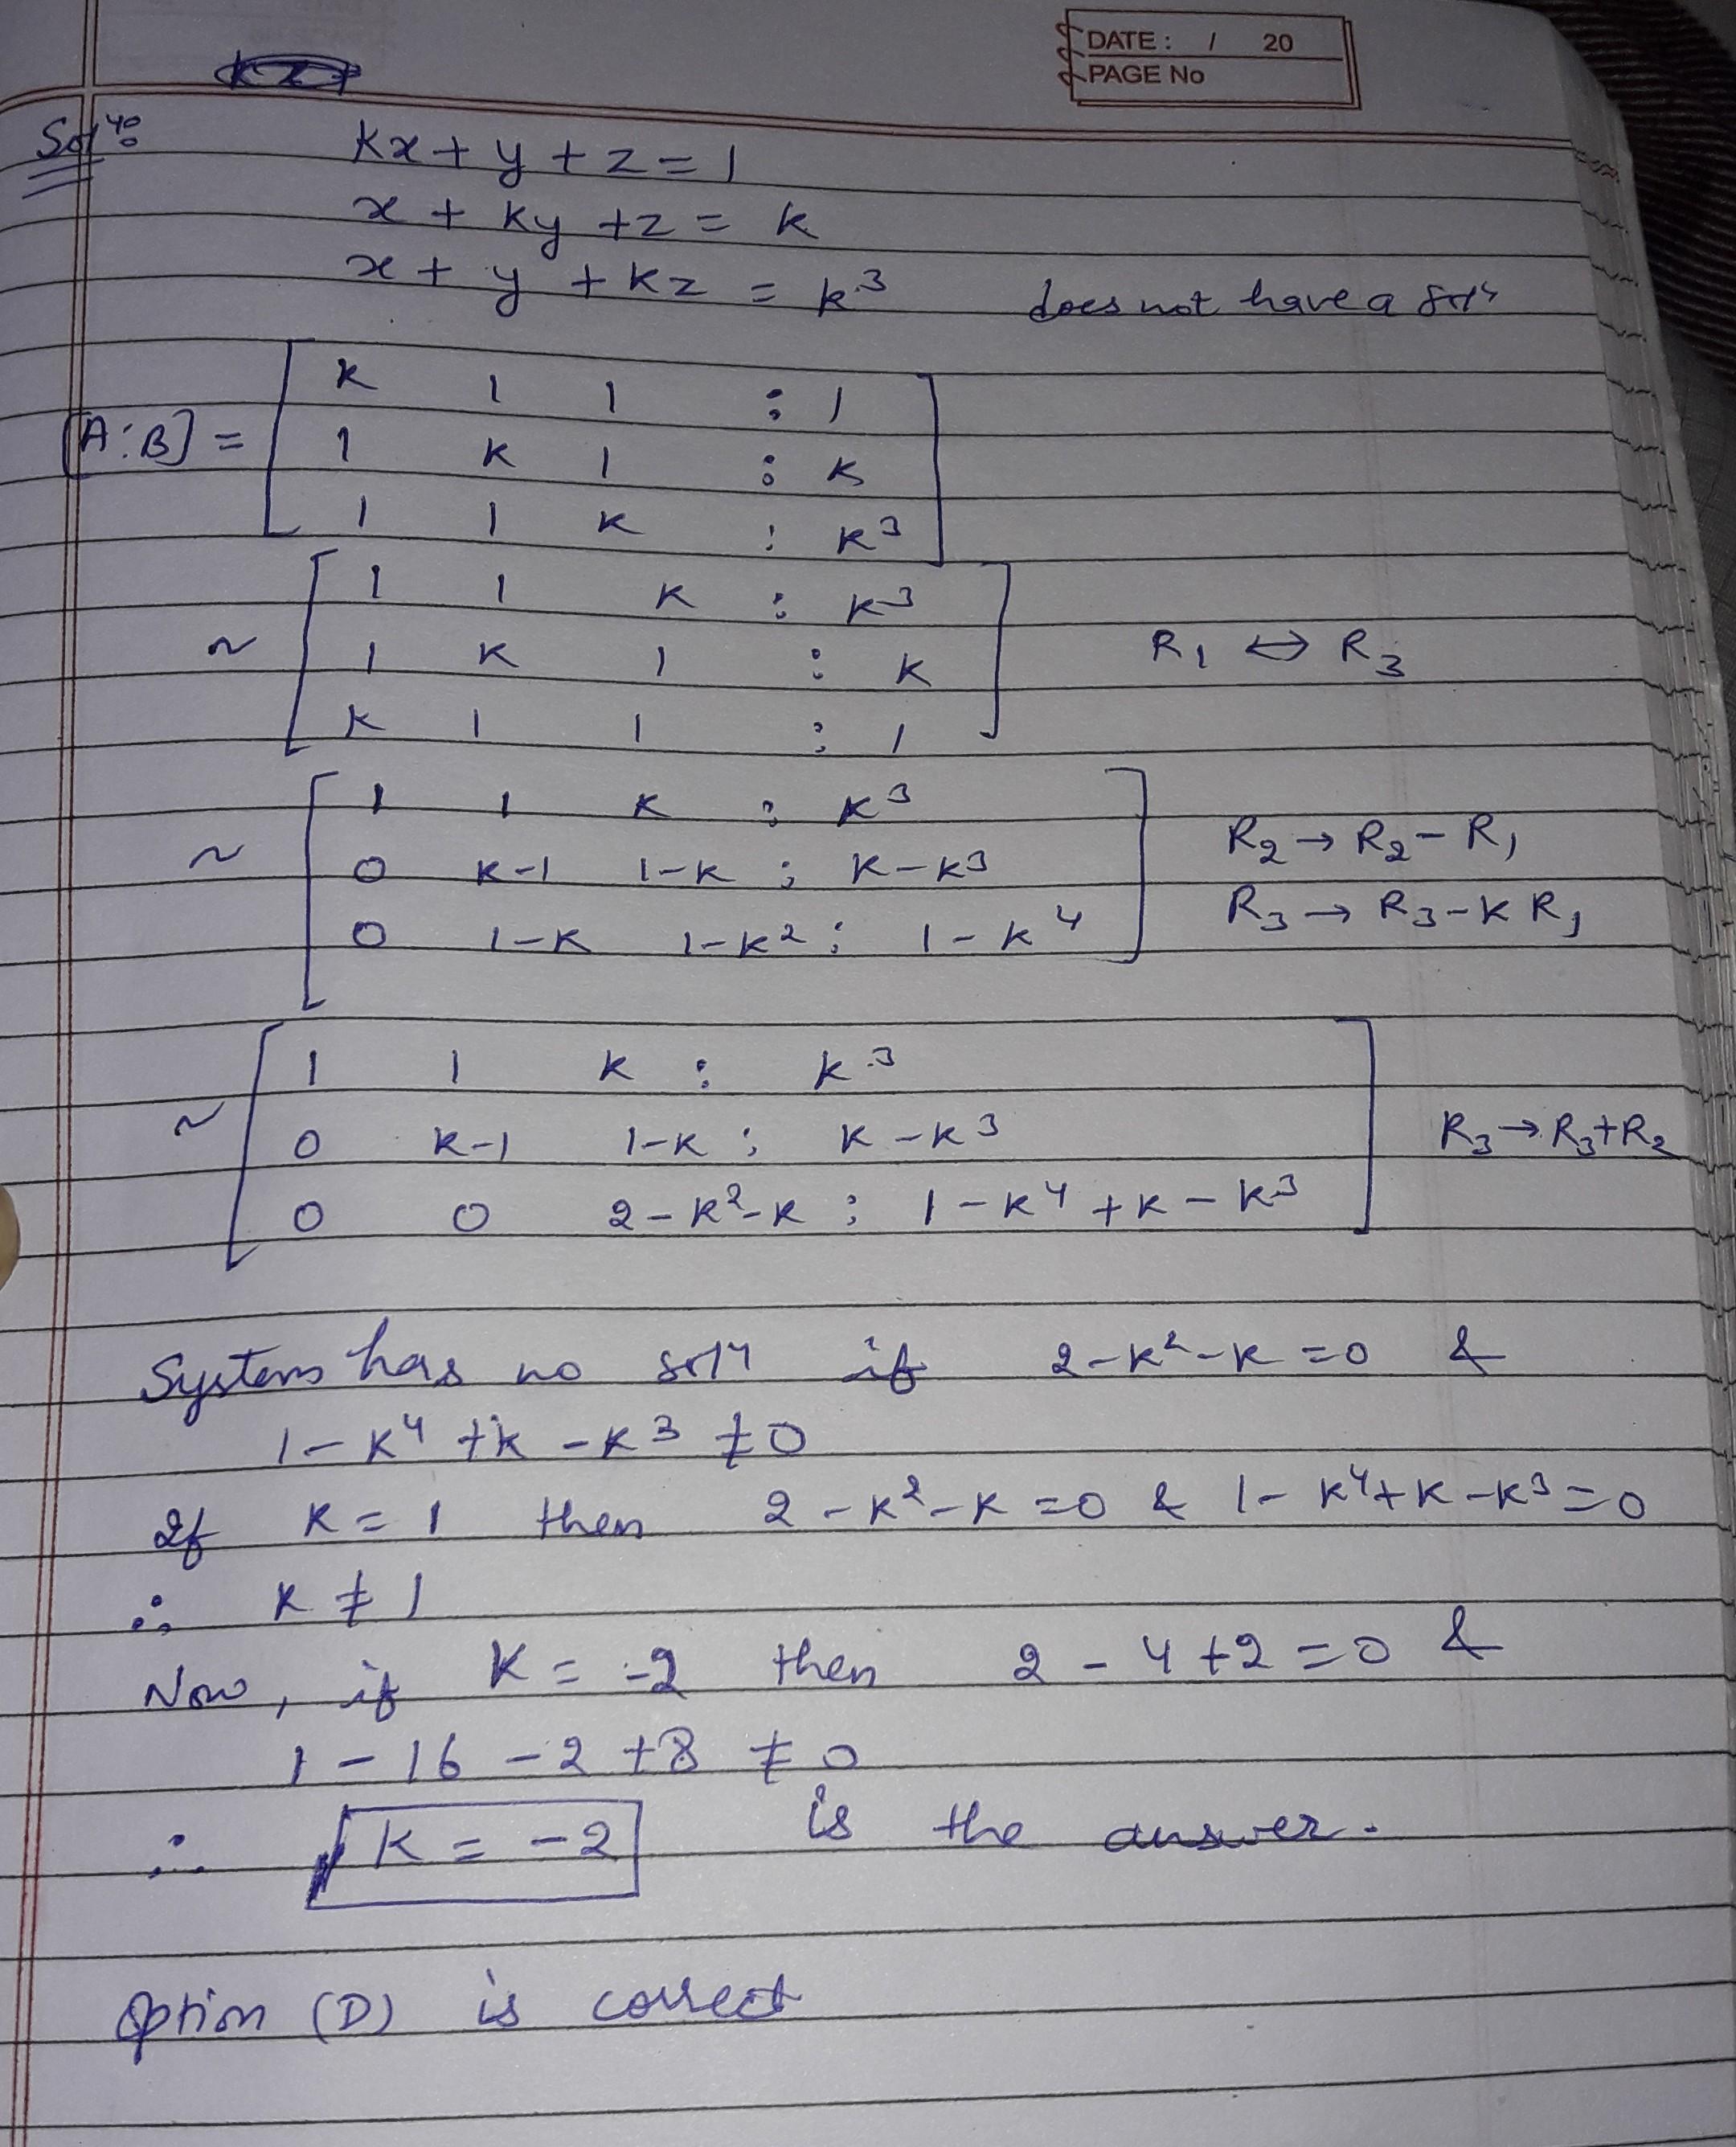 DATE: / 20
PAGE No
Solⁿ:
Kx + y + z = 1
x + ky + z = k
x + y + kz = k³ does not have a solⁿ
[A:B] =
K 1 1 : 1
1 K 1 : K
1 1 K : K³
~
1 1 K : K³
1 K 1 : K
K 1 1 : 1
R₁ ⇔ R₃
~
1 1 K : K³
0 K-1 1-K : K-K³
0 1-K 1-K² : 1-K⁴
R₂ → R₂ - R₁
R₃ → R₃ - K R₁
~
1 1 K : K³
0 K-1 1-K : K-K³
0 0 2-K²-K : 1-K⁴+K-K³
R₃ → R₃+R₂
System has no solⁿ if 2-K²-K=0 &
1-K⁴+K-K³ ≠0
If K=1 then 2-K²-K=0 & 1-K⁴+K-K³=0
∴ K ≠ 1
Now, if K = -2 then 2-4+2=0 &
1-16-2+8 ≠ 0
∴ K = -2 is the answer.
Option (D) is correct